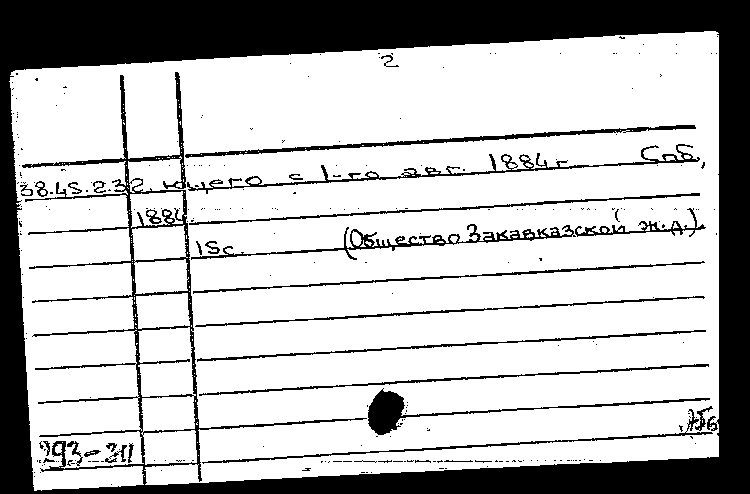 2
38.45.2.32. ющего с 1-го авг. 1884 г. Спб,
1884.
15 с. (Общество Закавказской ж.д.).
293-311